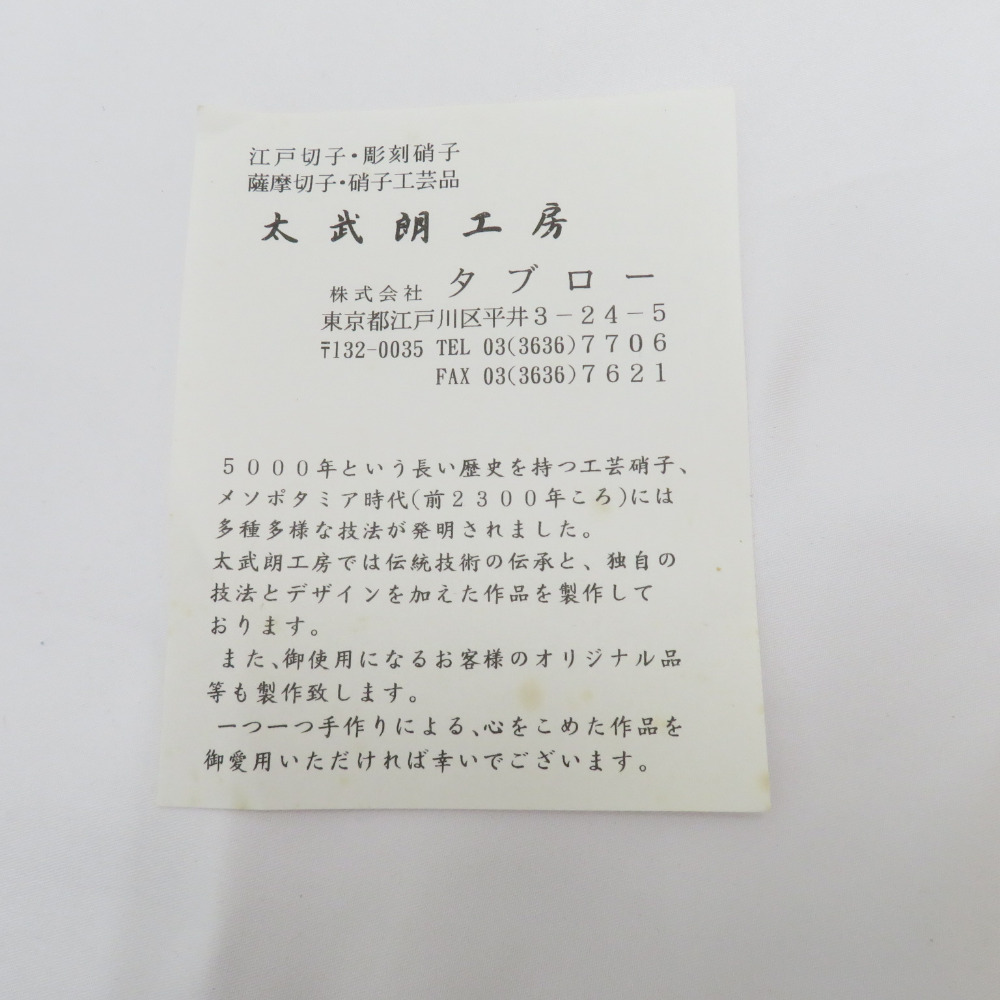 江戸切子・彫刻硝子
薩摩切子・硝子工芸品
太武朗工房
株式会社 タブロー
東京都江戸川区平井３－２４－５
〒132-0035 TEL 03(3636)７７０６
FAX 03(3636)７６２１
５０００年という長い歴史を持つ工芸硝子、
メソポタミア時代(前２３００年ころ)には
多種多様な技法が発明されました。
太武朗工房では伝統技術の伝承と、独自の
技法とデザインを加えた作品を製作して
おります。
また、御使用になるお客様のオリジナル品
等も製作致します。
一つ一つ手作りによる、心をこめた作品を
御愛用いただければ幸いでございます。